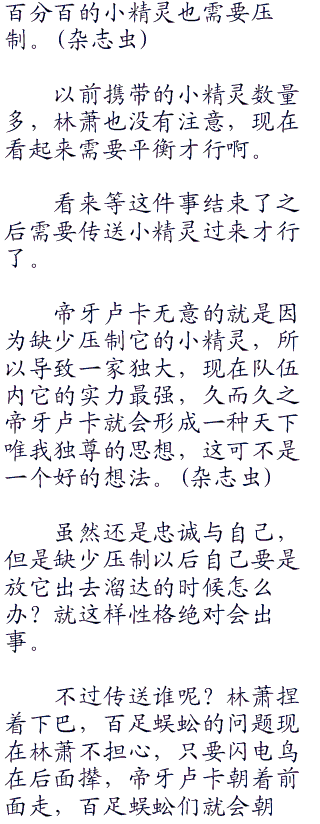 百分百的小精灵也需要压
制。(杂志虫)
以前携带的小精灵数量
多，林萧也没有注意，现在
看起来需要平衡才行啊。
看来等这件事结束了之
后需要传送小精灵过来才行
了。
帝牙卢卡无意的就是因
为缺少压制它的小精灵，所
以导致一家独大，现在队伍
内它的实力最强，久而久之
帝牙卢卡就会形成一种天下
唯我独尊的思想，这可不是
一个好的想法。(杂志虫)
虽然还是忠诚与自己，
但是缺少压制以后自己要是
放它出去溜达的时候怎么
办？就这样性格绝对会出
事。
不过传送谁呢？林萧捏
着下巴，百足蜈蚣的问题现
在林萧不担心，只要闪电鸟
在后面撵，帝牙卢卡朝着前
面走，百足蜈蚣们就会朝